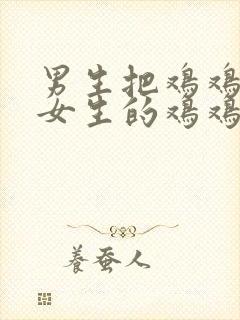 男生把鸡鸡
女生的鸡鸡
养蚕人